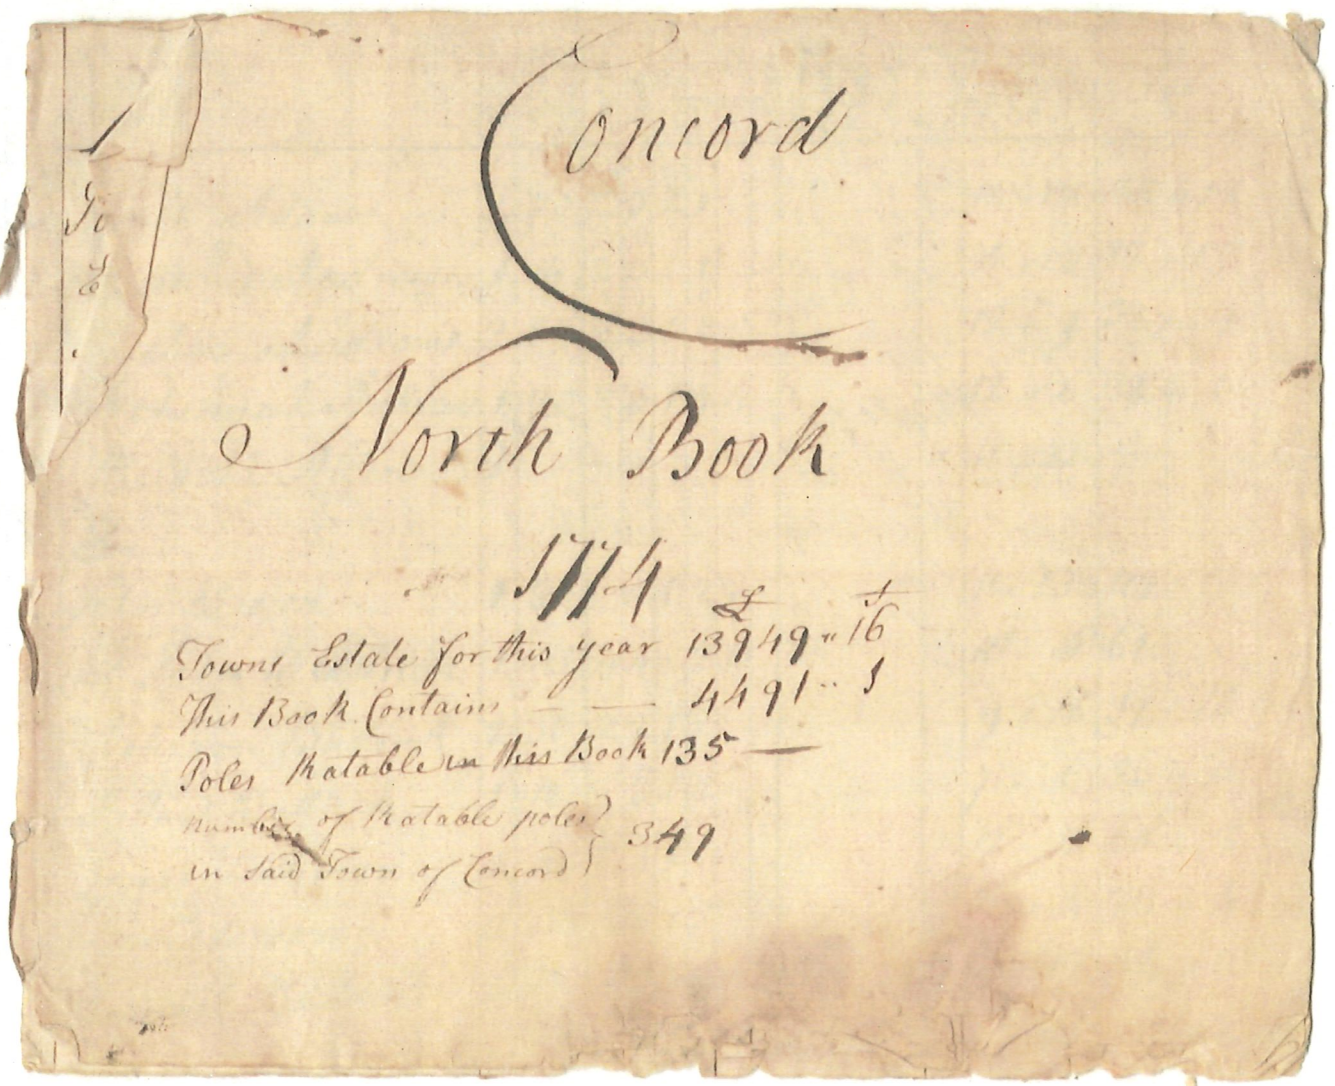 Concord
North Book
1774
£ s
Towns Estate for this year 13949 " 16
This Book Contains — — 4491 " 1
Poles Ratable in this Book 135 —
number of Ratable poles } 349
in said Town of Concord
To